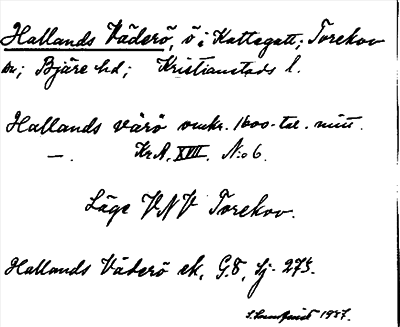 Hallands Väderö, ö i Kattegatt; Torekov
sn; Bjäre hd; Kristianstads l.
Hallands värö omkr. 1600-tal. mitt.
—. Kr. A. XVII. N:o 6.
Läge VNV Torekov.
Hallands Väderö ek, G.8, Sj- 275.
1937.